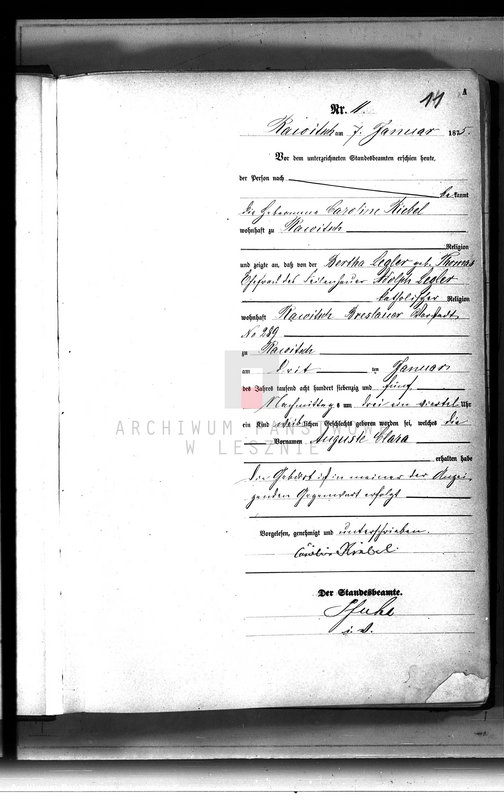 11
A
Nr. 11.
Rawitsch am 7. Januar 1875.
Vor dem unterzeichneten Standesbeamten erschien heute,
der Person nach
be kannt
die Hebamme Caroline Kiebel
wohnhaft zu Rawitsch
Religion
und zeigte an, daß von der Bertha Legler geb. Thomas
Ehefrau des Feilenhauer Adolph Legler
katholischer Religion
wohnhaft Rawitsch Breslauer Vorstadt
No 289
zu Rawitsch
am ten Januar
des Jahres tausend acht hundert siebenzig und fünf
Nachmittags um drei ein viertel Uhr
ein Kind weiblichen Geschlechts geboren worden sei, welches die
Vornamen Auguste Clara
erhalten habe
die Geburt ist in meiner der Anzei-
genden Gegenwart erfolgt
Vorgelesen, genehmigt und unterschrieben.
Caroline Kiebel
Der Standesbeamte.
i. V.
ARCHIWUM PAŃSTWOWE
W LESZNIE